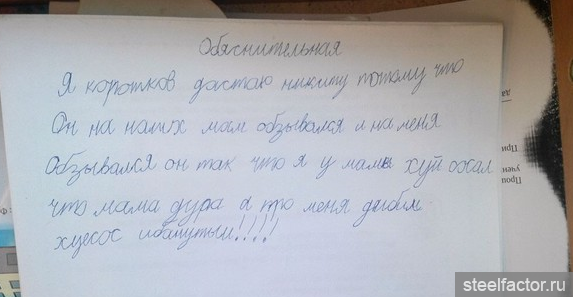 Обяснительная
Я коротков дастаю никиту потому что
Он на наших мам обзывался и на меня
Обзывался он так что я у мамы хуй сосал
что мама дура а про меня
хуесос ибанутый!!!!
При
учен
steelfactor.ru